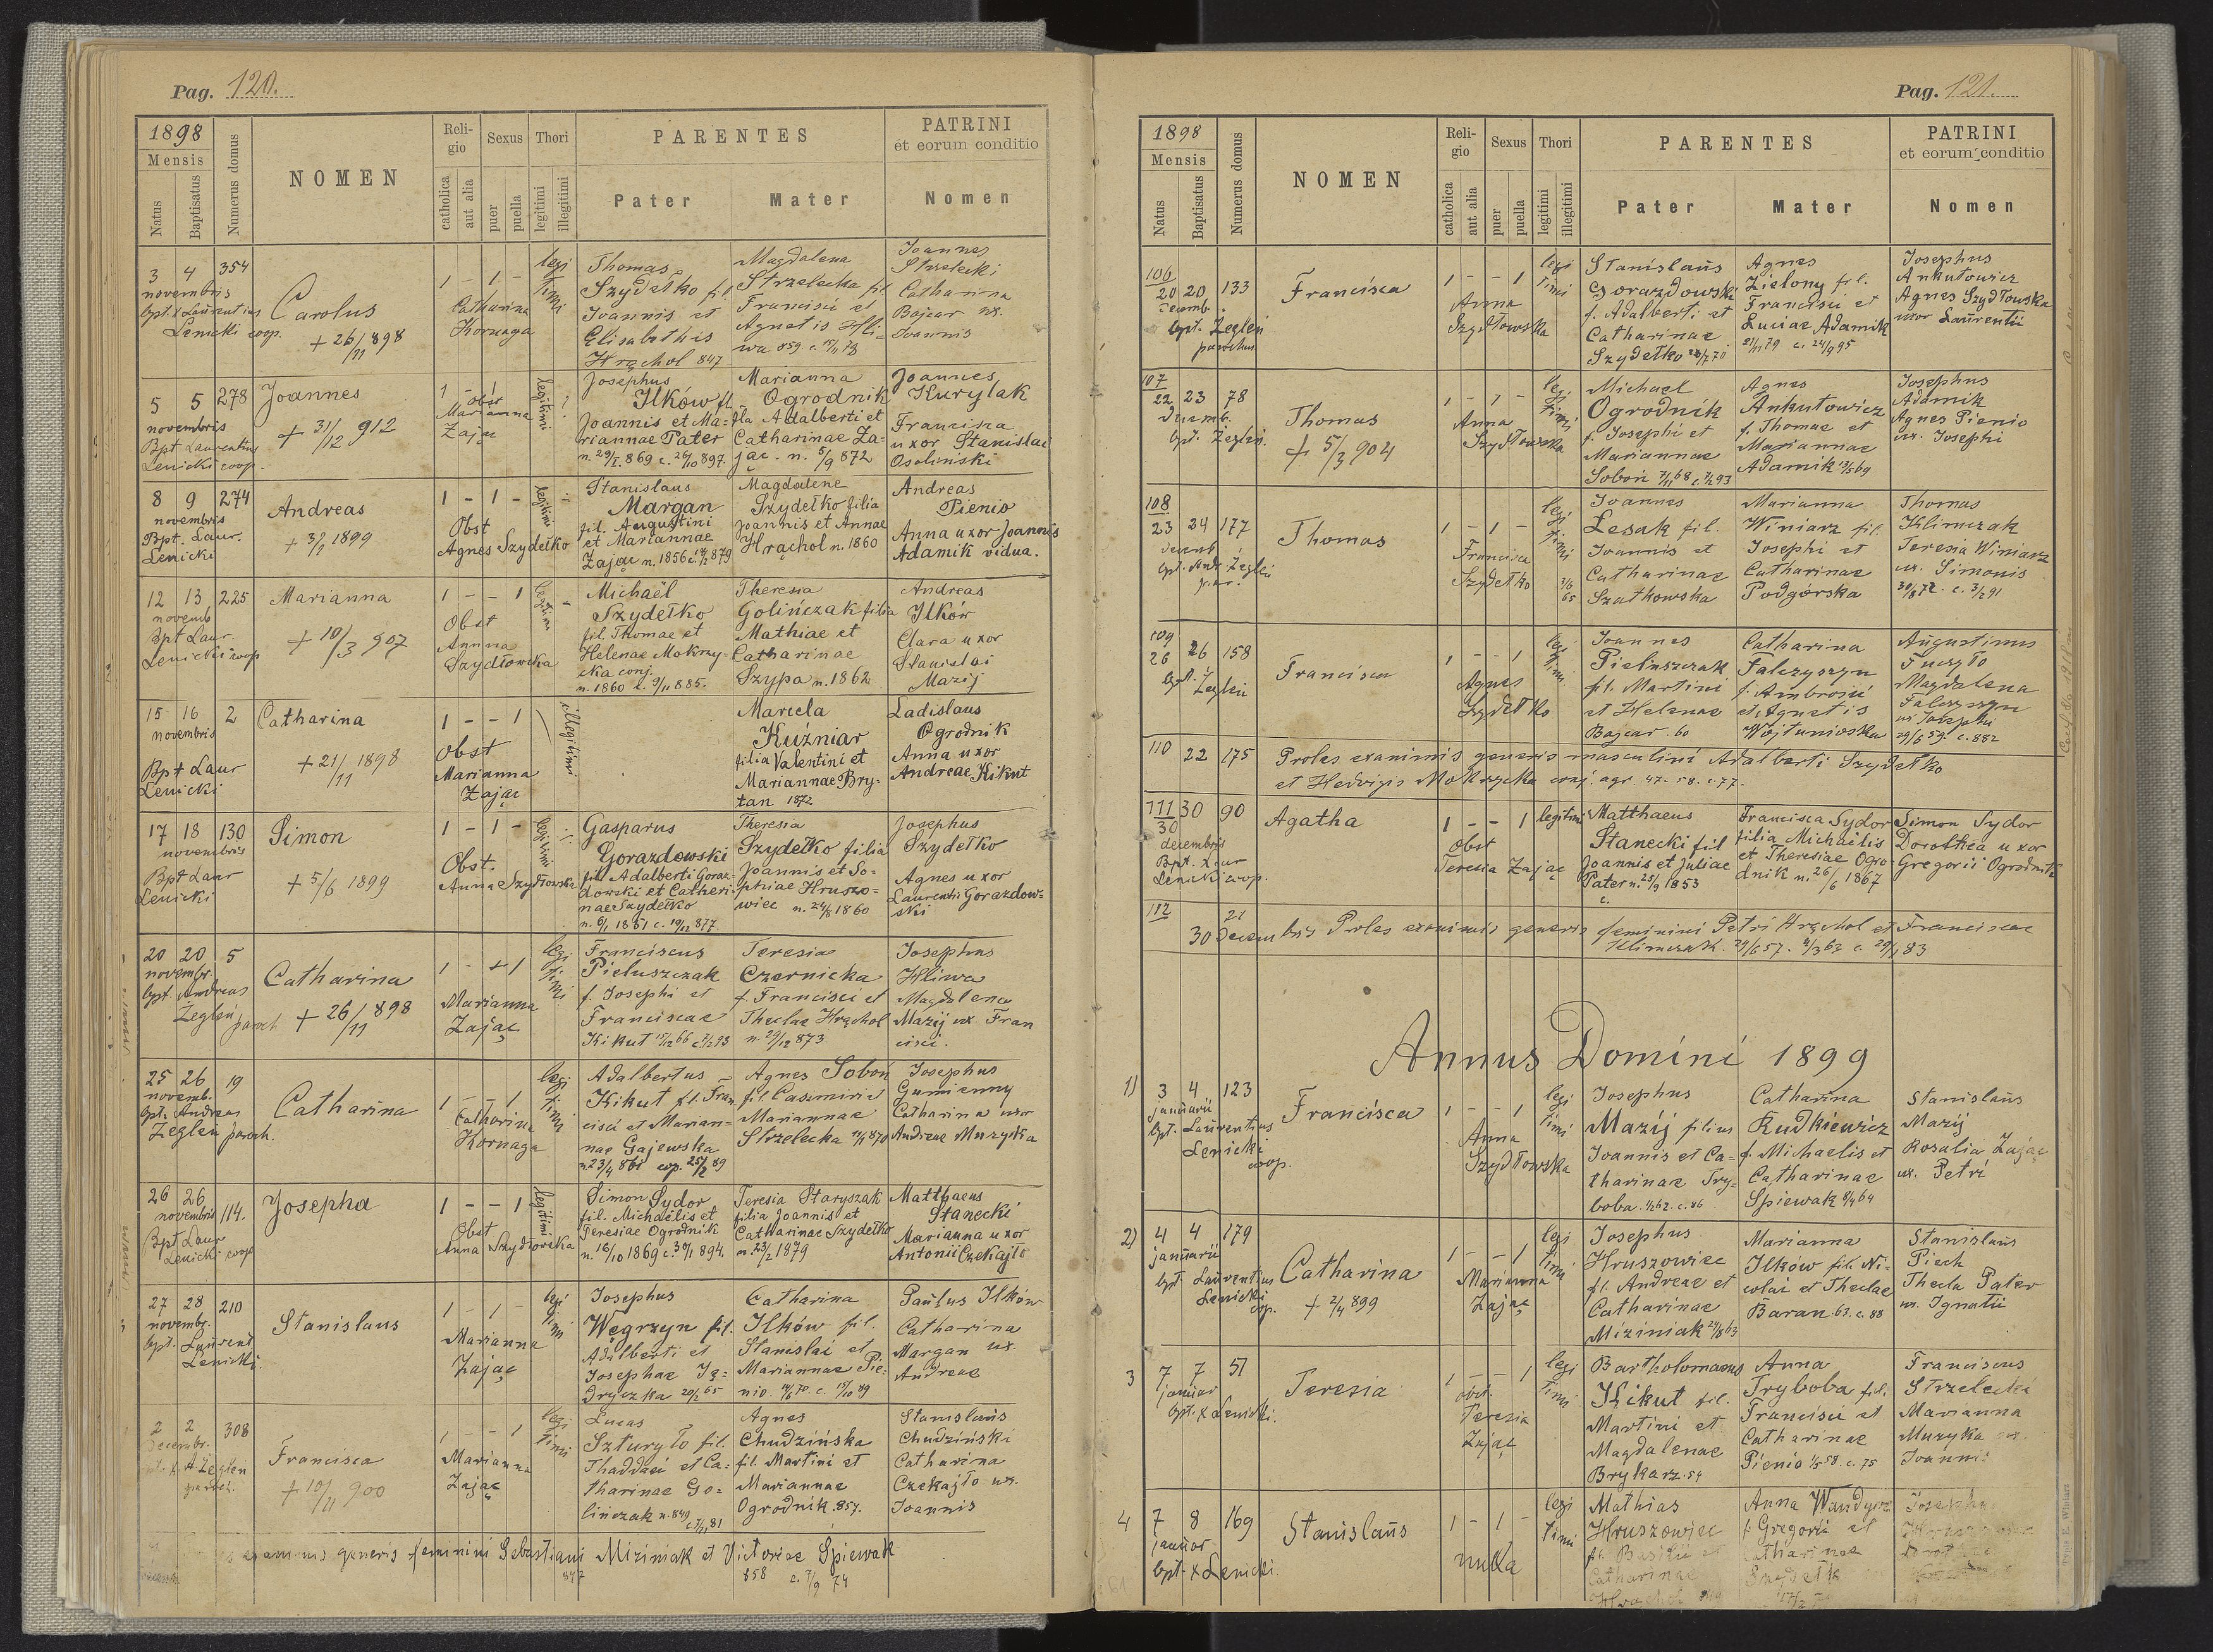 Pag. 120.
1898
Mensis
Natus
Baptisatus
Numerus domus
NOMEN
Reli-
gio
catholica
aut alia
Sexus
puer
puella
Thori
legitimi
illegitimi
PARENTES
Pater
Mater
PATRINI
et eorum conditio
Nomen
3 4 354
novembris
bpt. X Laurentius
Lenicki coop.
Carolus
+ 26/11 898
1 - 1 -
Catharina
Kornaga
legi
timi
Thomas
Szydełko fil.
Joannis et
Elisabethis
Hrąchol 847
Magdalena
Strzelecka fil.
Francisci et
Agnetis Hli=
wa 859. c.
Joannes
Strzelecki
Catharina
Bojcar ux.
Joannis
5 5 278
novembris
Bpt Laurentius
Lenicki coop.
Joannes
+ 31/12 912
1 -
obst
Marianna
Zając
legitimi
Josephus
Ilków fl.
Joannis et Ma=
riannae Pater
n. 29/I. 869 c. 26/10 897.
Marianna
Ogrodnik
fla Adalberti et
Catharinae Za-
jąc - n. 5/9 872
Joannes
Kurylak
Francisca
uxor Stanislai
Osoliński
8 9 274
novembris
Bpt. Laur.
Lenicki
Andreas
+ 3/2 1899
1 - 1 -
Obst
Agnes Szydełko
legitimi
Stanislaus
Margan
fil. Augustini
et Mariannae
Zając n. 1856
Magdalene
Szydełko filia
Joannis et Annae
Hrąchol n. 1860
Andreas
Pienio
Anna uxor Joannis
Adamik vidua.
12 13 225
novemb
Bpt Laur.
Lenicki coop
Marianna
+ 10/3 907
1 - - 1
Obst
Annna
Szydłowska
legitimi
Michaël
Szydełko
fil. Thomae et
Helenae Mokrzy-
cka conj.
n. 1860 c. 9/11 885.
Theresia
Golińczak filia
Mathiae et
Catharinae
Szypa n. 1862
Andreas
Ilków
Clara uxor
Stanislai
Mazij
15 16 2
novembris
Bpt Laur
Lenicki
Catharina
+ 21/11 1898
1 - - 1
Obst
Marianna
Zając
illegitimi
Marcela
Kuzniar
filia Valentini et
Mariannae Bry-
tan 1872
Ladislaus
Ogrodnik
Anna uxor
Andreae Kikut
17 18 130
novembris
Bpt Laur
Lenicki
Simon
+ 5/6 1899
1 - 1 -
Obst.
Anna Szydłowska
legitimi
Gasparus
Gorazdowski
fil. Adalberti Goraz-
dowski et Catheri-
nae Szydełko
n. 6/1 1851 c. 19/12 877
Theresia
Szydełko filia
Joannis et So-
phiae Hruszo=
wiec n. 24/8 1860
Josephus
Szydełko
Agnes uxor
Laurentii Gorazdow-
ski
20 20 5
novembr.
bpt. Andreas
Żegleń paroch
Catharina
+ 26/11 898
Marianna
Zając
legi
timi
Franciscus
Pieluszczak
f. Josephi et
Franciscae
Kikut 15/12 66
Teresia
Czernicka
f. Francisci et
Theclae Hrąchol
n. 29/12 873
Josephus
Hliwa
Magdalena
Mazij ux. Fran
cisci.
25 26 19
novemb.
bpt. Andreas
Żegleń paroch.
Catharina
1 - - 1
Catharina
Kornaga
legi
timi
Adalbertus
Kikut fil. Fran
cisci et Marian=
nae Gajewska
n. 23/4 861 cop. 25/2 89
Agnes Soboń
fil. Casimiri et
Mariannae
Strzelecka
Josephus
Gumienny
Catharina uxor
Andreae Muzyka
26 26 114.
novembris
Bpt Laur
Lenicki coop
Josepha
1 - - 1
Obst
Anna Szydłowska
legitimi
Simon Sydor
fil. Michaëlis et
Teresiae Ogrodnik
n. 16/10 1869 c. 30/1 894.
Teresia Staryszak
filia Joannis et
Catharinae Szydełko
n. 23/2 1879
Matthaeus
Stanecki
Marianna uxor
Antonii Czekajło
27 28 210
novembr.
bpt. Laurent
Lenicki.
Stanislaus
1 - 1 -
Marianna
Zając
legi
timi
Josephus
Węgrzyn fil.
Adalberti et
Josephae Ję=
dryczka 20/2 65
Catharina
Ilków fil.
Stanislai et
Mariannae Pie=
nio.
Paulus Ilków
Catharina
Margan ux.
Andreae
2 2 308
Decembr.
Żegleń
paroch.
Francisca
+ 10/11 900
1 - - 1
Marianna
Zając
legi
timi
Lucas
Szturyło fil.
Thaddaei et Ca=
tharinae Go=
linczak n. 849
Agnes
Chudzińska
fil. Martini et
Mariannae
Ogrodnik 857.
Stanislaus
Chudziński
Catharina
Czekajło ux.
Joannis
exanimis generis feminini Sebastiani Miziniak et Victoriae Śpiewak
847 858 c. 7/9 74
Pag. 121.
1898
Mensis
Natus
Baptisatus
Numerus domus
NOMEN
Reli-
gio
catholica
aut alia
Sexus
puer
puella
Thori
legitimi
illegitimi
PARENTES
Pater
Mater
PATRINI
et eorum conditio
Nomen
106
20 20 133
decemb.
bpt. Żegleń
parochus
Francisca
1 - - 1
Anna
Szydłowska
legi
timi
Stanislaus
Gorazdowski
f. Adalberti et
Catharinae
Szydełko
Agnes
Zielony fil.
Francisci et
Luciae Adamik
21/11 79 c. 24/9 95
Josephus
Ankutowicz
Agnes Szydłowska
uxor Laurentii
107
22 23 78
Decemb.
bpt. Żegleń.
Thomas
+ 5/3 904
1 - 1 -
Anna
Szydłowska
legi
timi
Michael
Ogrodnik
f. Josephi et
Mariannae
Soboń 7/11 68 c. 7/2 93
Agnes
Ankutowicz
f. Thomae et
Mariannae
Adamik 13/5 69
Josephus
Adamik
Agnes Pienio
ux. Josephi
108
23 24 177
decemb
bpt. Andr. Żegleń
par.
Thomas
1 - 1 -
Francisca
Szydełko
legi
timi
3/6
65
Joannes
Lesak fil.
Joannis et
Catharinae
Szatkowska
Marianna
Winiarz fil.
Josephi et
Catharinae
Podgórska
Thomas
Klimczak
Teresia Winiarz
ux. Simonis
30/8 72. c. 3/2 91
109
26 26 158
bpt.
Żegleń
Francisca
1 - - 1
Agnes
Szydełko
legi
timi.
Joannes
Pieluszczak
fil. Martini
et Helenae
Bajcar. 60
Catharina
Falczyszyn
f. Ambrosii
et Agnetis
Wojtuniowska
Augustinus
Fuczyło
Magdalena
Falczyszyn
ux Josephi
29/6 59. c. 882
110 22 175
Proles exanimis generis masculini Adalberti Szydełko
et Hedvigis Mokrzycka conj. agr. 47 - 58. c. 77.
111 30 90
30
decembris
Bpt. Laur
Lenicki coop.
Agatha
1 - - 1
Obst
Teresia Zając
legitimi
Matthaeus
Stanecki fil
Joannis et Juliae
Pater n. 25/9 1853
c.
Francisca Sydor
filia Michaëlis
et Theresiae Ogro
dnik n. 26/6 1867
Simon Sydor
Dorothea uxor
Gregorii Ogrodnik
112 21
30 Decembris Proles exanimis generis feminini Petri Hrąchol et Franciscae
Klimczak. 29/6 57. 8/3 63 c. 29/1 83
Annus Domini 1899
1) 3 4 123
januarii
bpt. Laurentius
Lenicki
coop.
Francisca
1 - - 1
Anna
Szydłowska
legi
timi
Josephus
Mazij filius
Joannis et Ca=
tharinae Try=
boba. 1/2 62. c. 86
Catharina
Rudkiewicz
f. Michaelis et
Catharinae
Śpiewak 9/4 64
Stanislaus
Mazij
Rosalia Zając
ux. Petri
2) 4 4 179
januarii
bpt. Laurentius
Lenicki
cop.
Catharina
+ 2/4 899
1 - - 1
Marianna
Zając
legi
timi
Josephus
Hruszowiec
fl. Andreae et
Catharinae
Miziniak 24/8 63
Marianna
Ilków fil. Ni=
colai et Theclae
Baran 63. c. 88
Stanislaus
Piech
Thecla Pater
ux. Ignatii
3 7 7 51
januar
bpt. X Lenicki.
Teresia
1 - - 1
obst.
Teresia
Zając
legi
timi
Bartholomaeus
Kikut fil.
Martini et
Magdalenae
Brykarz. 54
Anna
Tryboba fil.
Francisci et
Catharinae
Pienio 1/5 58. c. 75
Franciscus
Strzelecki
Marianna
Muzyka ux.
Joannis
4 7 8 169
januar.
bpt. X Lenicki
Stanislaus
1 - 1 -
nulla
legi
timi
Mathias
Hruszowiec
fl. Basilii et
Catharinae
Anna
f. Gregorii et
Catharinae
Szydełk